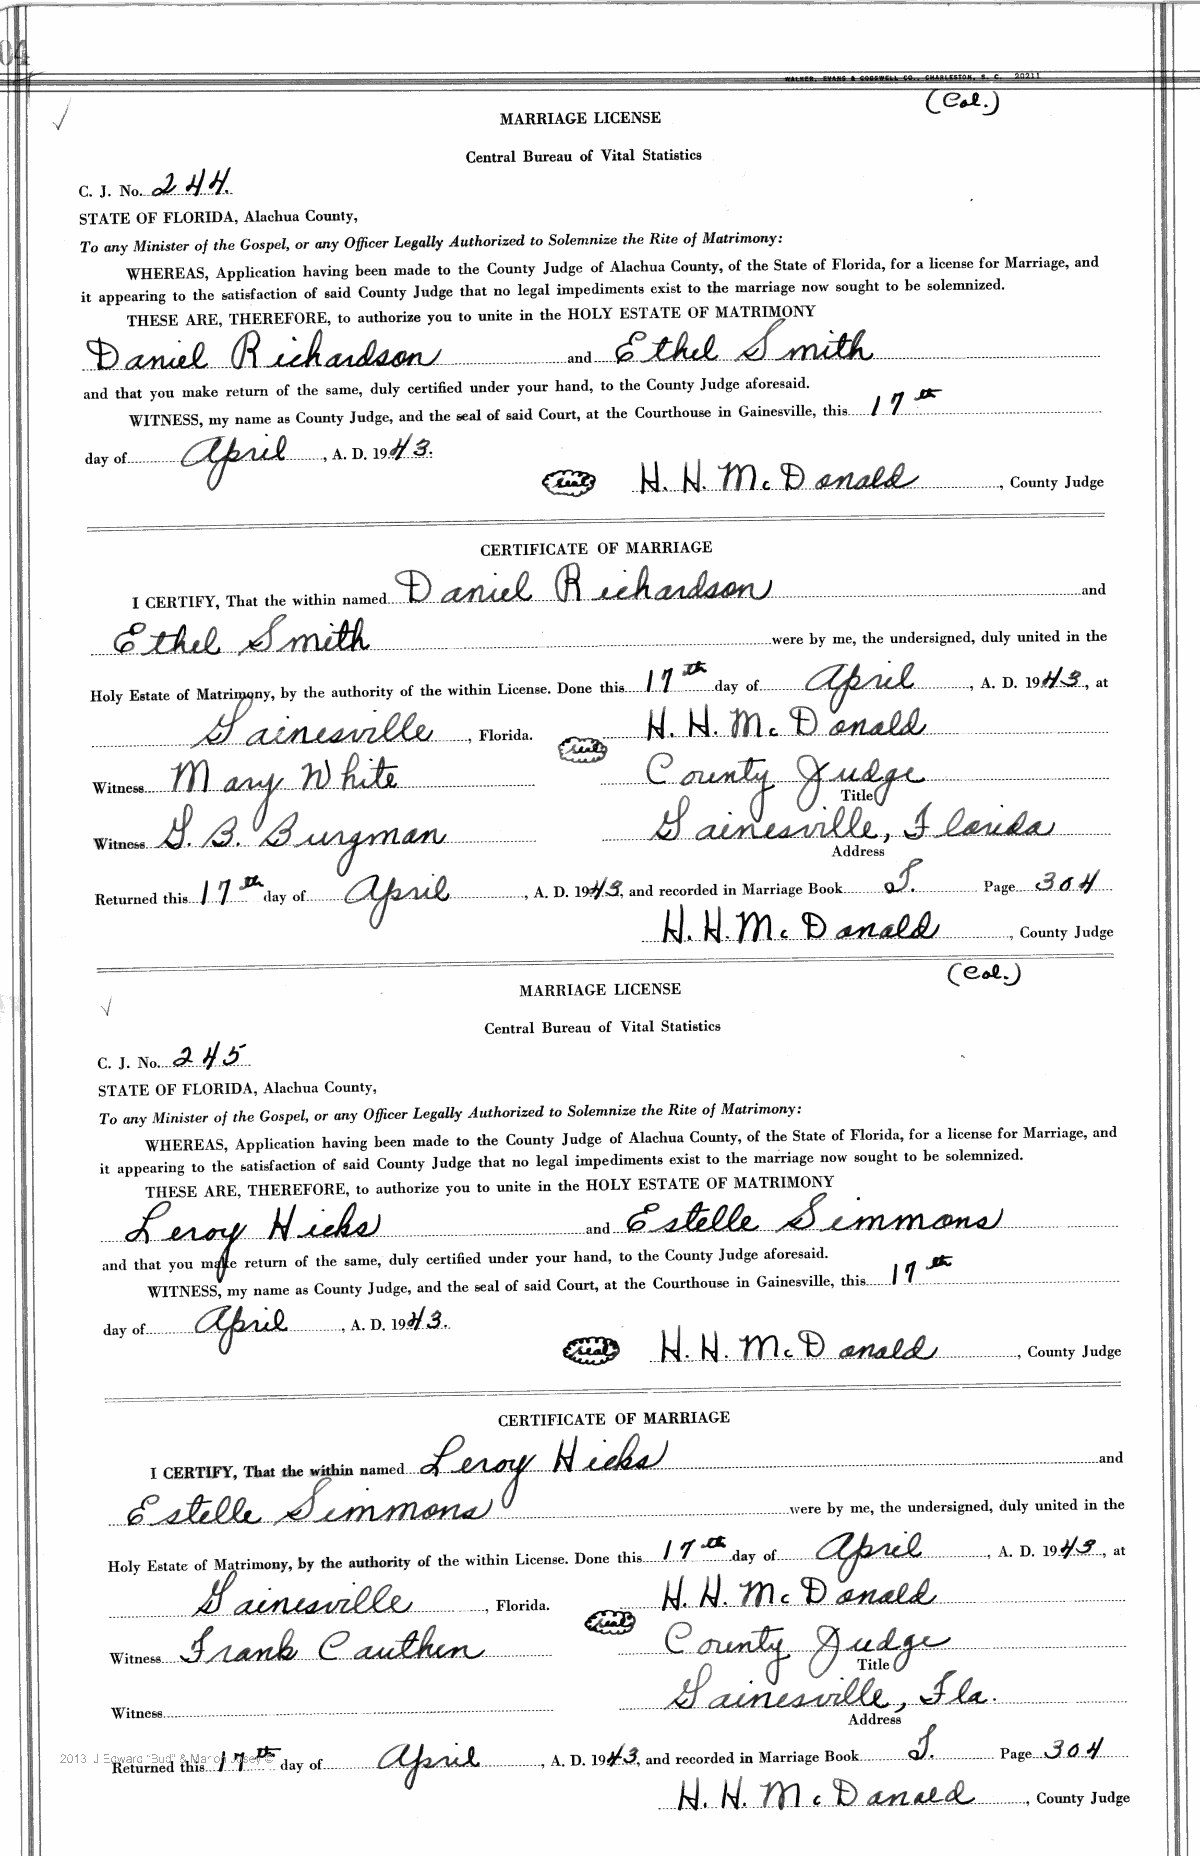 04
WALKER, EVANS & COGSWELL CO., CHARLESTON, S. C. 20211
(Col.)
MARRIAGE LICENSE
Central Bureau of Vital Statistics
C. J. No. 244.
STATE OF FLORIDA, Alachua County,
To any Minister of the Gospel, or any Officer Legally Authorized to Solemnize the Rite of Matrimony:
WHEREAS, Application having been made to the County Judge of Alachua County, of the State of Florida, for a license for Marriage, and
it appearing to the satisfaction of said County Judge that no legal impediments exist to the marriage now sought to be solemnized.
THESE ARE, THEREFORE, to authorize you to unite in the HOLY ESTATE OF MATRIMONY
Daniel Richardson and Ethel Smith
and that you make return of the same, duly certified under your hand, to the County Judge aforesaid.
WITNESS, my name as County Judge, and the seal of said Court, at the Courthouse in Gainesville, this 17th
day of April, A. D. 1943.
seal H. H. McDonald, County Judge
CERTIFICATE OF MARRIAGE
I CERTIFY, That the within named Daniel Richardson and
Ethel Smith were by me, the undersigned, duly united in the
Holy Estate of Matrimony, by the authority of the within License. Done this 17th day of April, A. D. 1943, at
Gainesville, Florida. seal H. H. McDonald
Witness Mary White County Judge
Title
Witness G. B. Burgman Gainesville, Florida
Address
Returned this 17th day of April, A. D. 1943, and recorded in Marriage Book Page 304
H. H. McDonald, County Judge
(Col.)
MARRIAGE LICENSE
Central Bureau of Vital Statistics
C. J. No. 245
STATE OF FLORIDA, Alachua County,
To any Minister of the Gospel, or any Officer Legally Authorized to Solemnize the Rite of Matrimony:
WHEREAS, Application having been made to the County Judge of Alachua County, of the State of Florida, for a license for Marriage, and
it appearing to the satisfaction of said County Judge that no legal impediments exist to the marriage now sought to be solemnized.
THESE ARE, THEREFORE, to authorize you to unite in the HOLY ESTATE OF MATRIMONY
Leroy Hicks and Estelle Simmons
and that you make return of the same, duly certified under your hand, to the County Judge aforesaid.
WITNESS, my name as County Judge, and the seal of said Court, at the Courthouse in Gainesville, this 17th
day of April, A. D. 1943.
seal H. H. McDonald, County Judge
CERTIFICATE OF MARRIAGE
I CERTIFY, That the within named Leroy Hicks and
Estelle Simmons were by me, the undersigned, duly united in the
Holy Estate of Matrimony, by the authority of the within License. Done this 17th day of April, A. D. 1943, at
Gainesville, Florida. seal H. H. McDonald
Witness Frank Cauthen County Judge
Title
Witness Gainesville, Fla.
Address
2013 J Edward "Bud" & Marion
Returned this 17th day of April, A. D. 1943, and recorded in Marriage Book Page 304
H. H. McDonald, County Judge